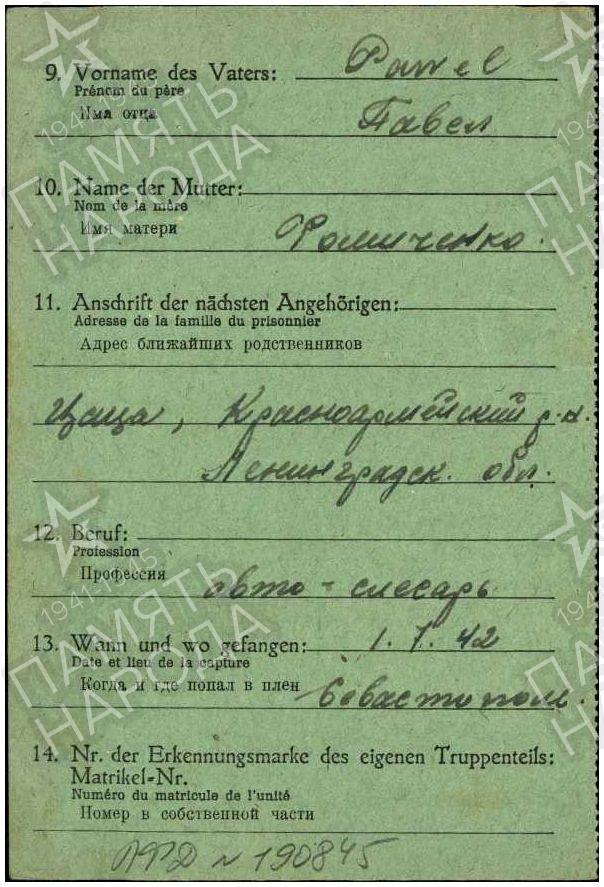 9. Vorname des Vaters: Pawel
Prénom du père
Имя отца Павел
10. Name der Mutter:
Nom de la mère
Имя матери Фомиченко.
11. Anschrift der nächsten Angehörigen:
Adresse de la famille du prisonnier
Адрес ближайших родственников
Цаца, Красноармейский р.н.
Ленинградск. обл.
12. Beruf:
Profession
Профессия авто-слесарь
13. Wann und wo gefangen: 1.7.42
Date et lieu de la capture
Когда и где попал в плен Севастополь.
14. Nr. der Erkennungsmarke des eigenen Truppenteils:
Matrikel-Nr.
Numéro du matricule de l'unité
Номер в собственной части
N 190845
1941-1945
ПАМЯТЬ
НАРОДА